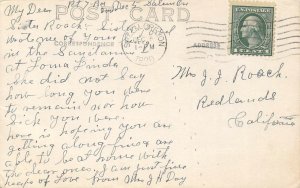 My Dear
POST CARD
Sister Roach. Sister
wrote me of your being
in the Sanitarium
CORRESPONDENCE
ADDRESS
at Loma Linda.
she did not say
how long you were
to remain nor how
sick you were.
here is hoping you are
getting along fine and
able to be at home with
the dear ones. I am just fine
heaps of Love from Mrs J H Day
Mrs J. J. Roach.
Redlands
California